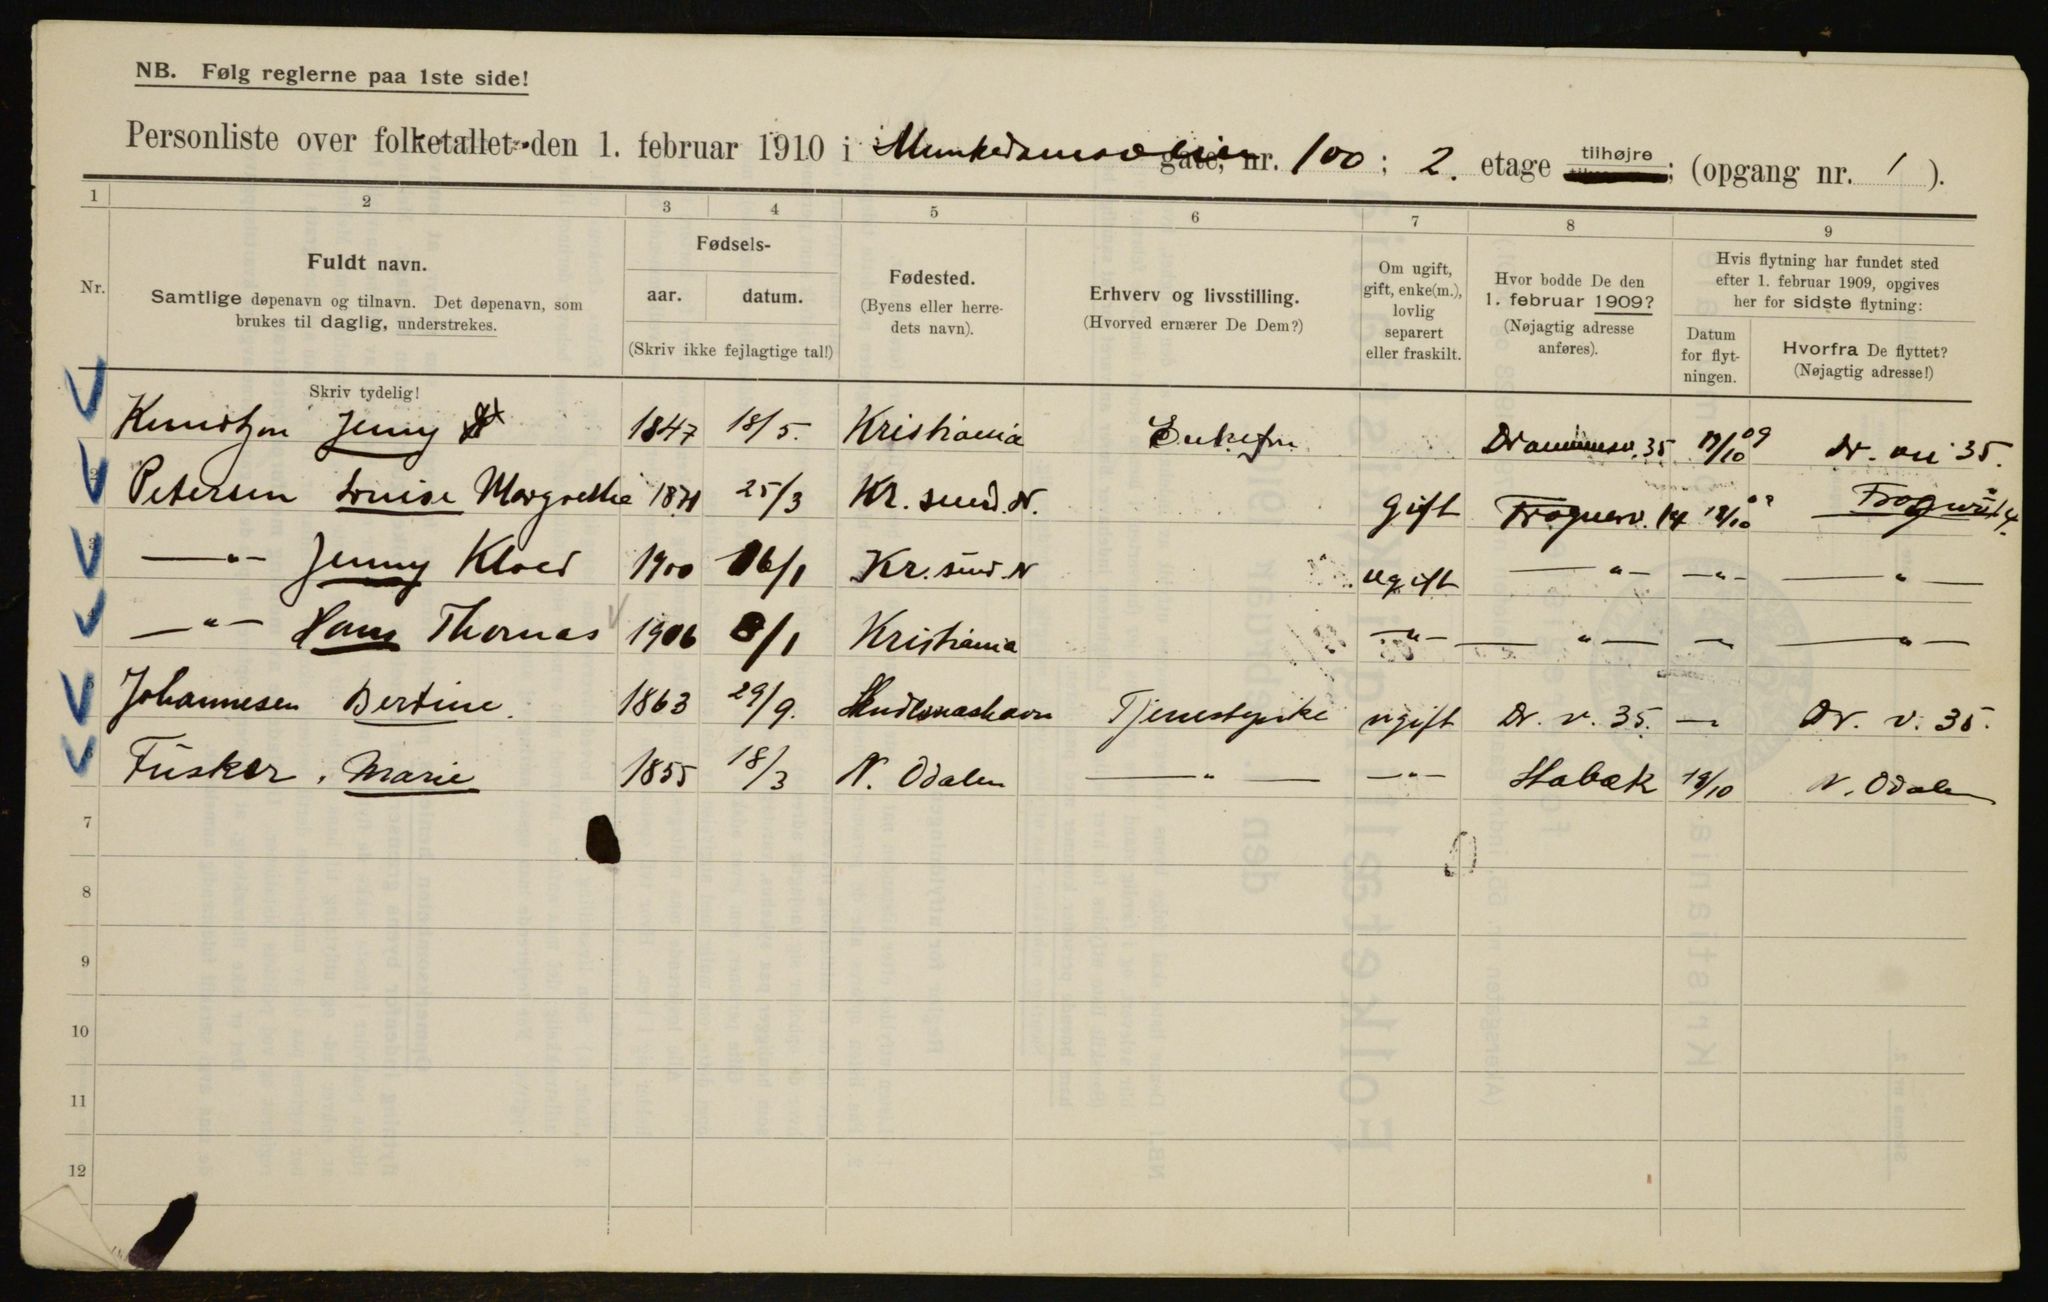 NB. Følg reglerne paa 1ste side!
Personliste over folketallet den 1. februar 1910 i Munkedamsveien gate, nr. 100 ; 2. etage tilhøjre ; (opgang nr. 1 ).
1 2 3 4 5 6 7 8 9
Nr.
Fuldt navn.
Samtlige døpenavn og tilnavn. Det døpenavn, som
brukes til daglig, understrekes.
Skriv tydelig!
Fødsels-
aar. datum.
(Skriv ikke fejlagtige tal!)
Fødested.
(Byens eller herre-
dets navn).
Erhverv og livsstilling.
(Hvorved ernærer De Dem?)
Om ugift,
gift, enke(m.),
lovlig
separert
eller fraskilt.
Hvor bodde De den
1. februar 1909?
(Nøjagtig adresse
anføres).
Hvis flytning har fundet sted
efter 1. februar 1909, opgives
her for sidste flytning:
Datum
for flyt-
ningen.
Hvorfra De flyttet?
(Nøjagtig adresse!)
Knudtzon Jenny 1847 18/5. Kristiania Enkefru Drammensv. 35 19/10 09 Dr. vei 35.
Petersen Louise Margrethe 1871 25/3 Kr. sund. N. Gift Frognerv. 14 19/10 Frognerv. 14.
—"— Jenny Kloed 1900 16/1 Kr. sund. N ugift —"— —"— —"—
—"— Hans Thomas 1906 8/1 Kristiania —"— —"— — —"—
Johannesen Bertine. 1863 29/9. Skudesneshavn Tjenestepike ugift Dr. v. 35. — Dr. v. 35.
Fusker, Marie 1855 18/3 N. Odalen —"— —"— Stabæk 19/10 N. Odalen
7
8
9
10
11
12